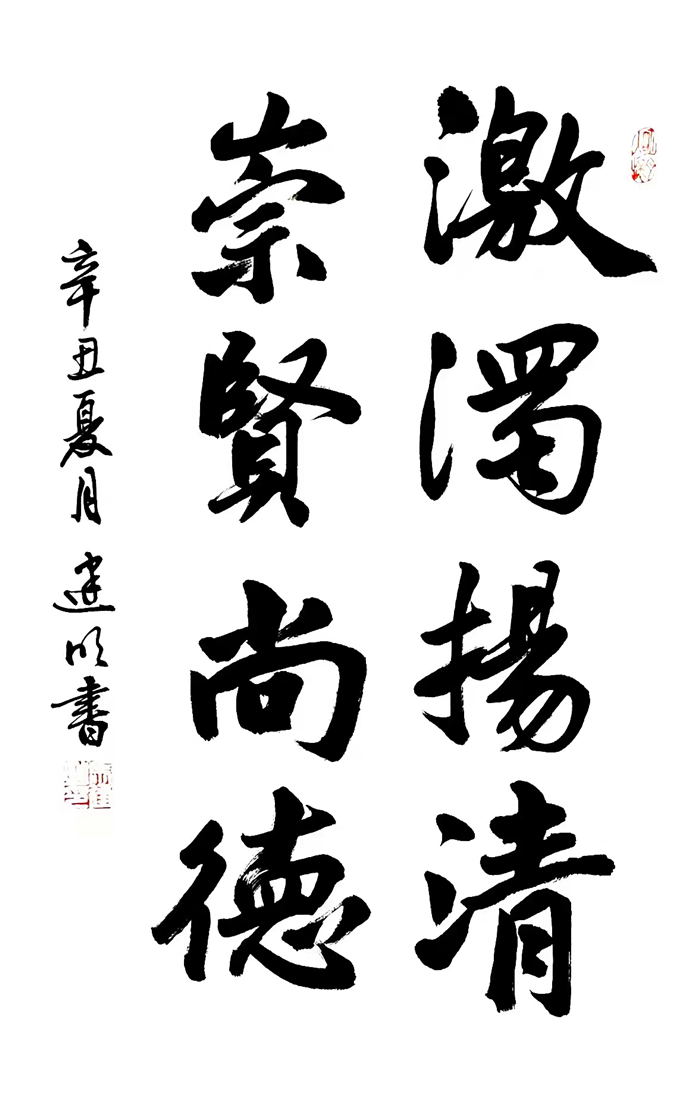 激濁揚清
崇賢尚德
辛丑夏月建明書